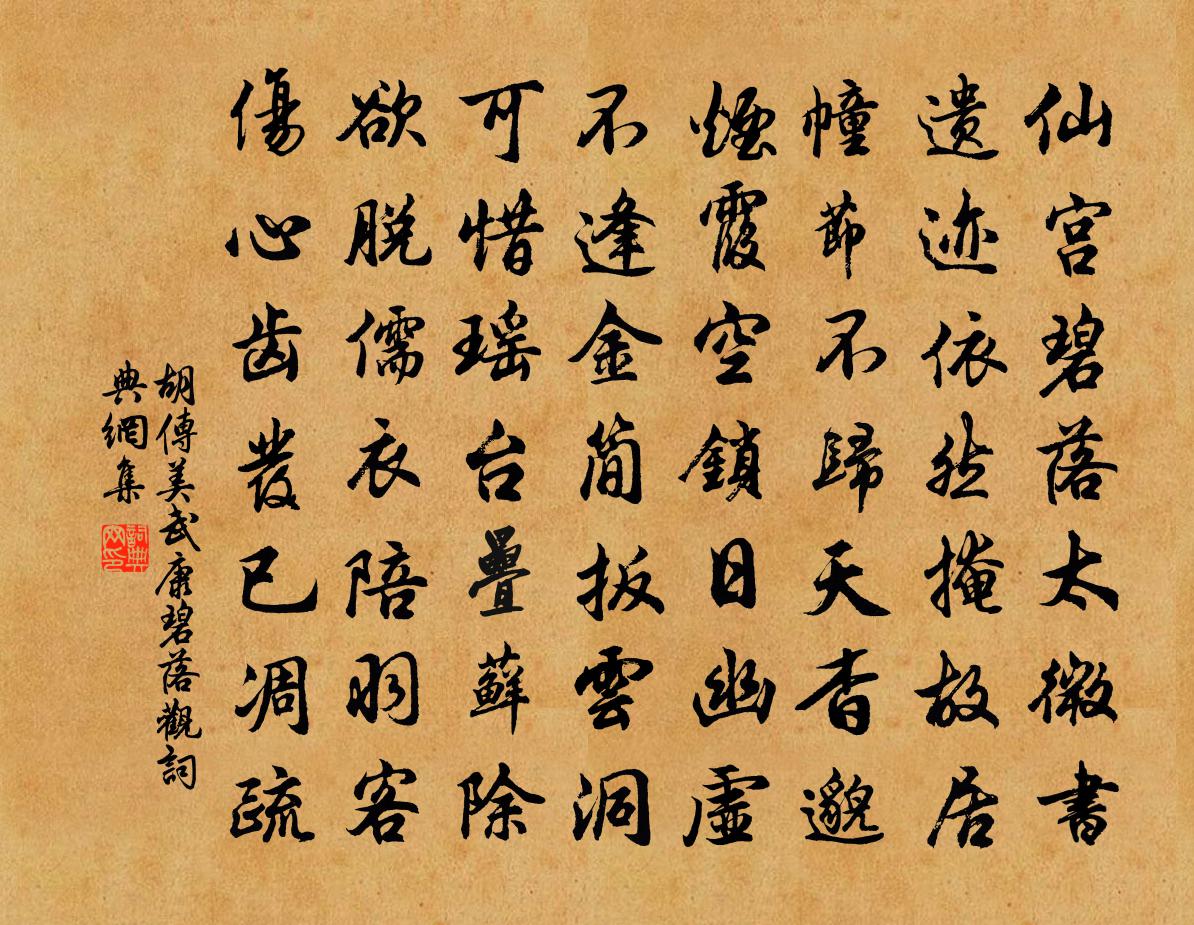 仙宫碧落太微書
遗迹依然掩故居
幢節不歸天杳邈
煙霞空鎖日幽虛
不逢金簡扳雲洞
可惜瑶台疊蘚除
欲脱儒衣陪羽客
傷心齿發已凋疏
胡傳美武康碧落觀詞
典網集
詞典网印